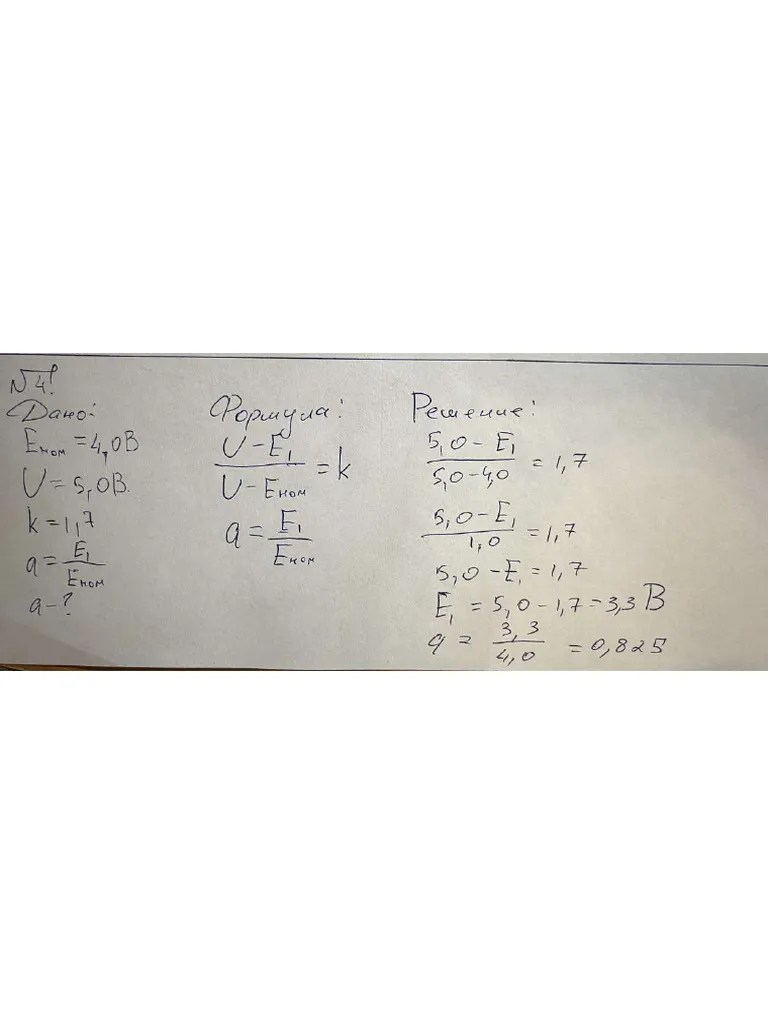 №4!
Дано:
Eном = 4,0В
U = 5,0В.
k = 1,7
a = E₁/Eном
a - ?
Формула:
(U - E₁)/(U - Eном) = k
a = E₁/Eном
Решение:
(5,0 - E₁)/(5,0 - 4,0) = 1,7
(5,0 - E₁)/1,0 = 1,7
5,0 - E₁ = 1,7
E₁ = 5,0 - 1,7 = 3,3 В
a = 3,3/4,0 = 0,825